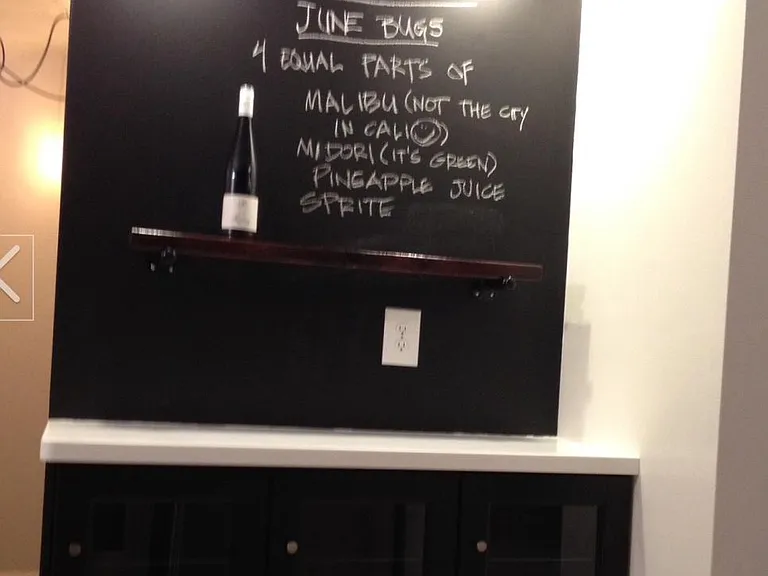 JUNE BUGS
4 EQUAL PARTS OF
MALIBU (NOT THE CITY
IN CALI☺)
MIDORI (IT'S GREEN)
PINEAPPLE JUICE
SPRITE